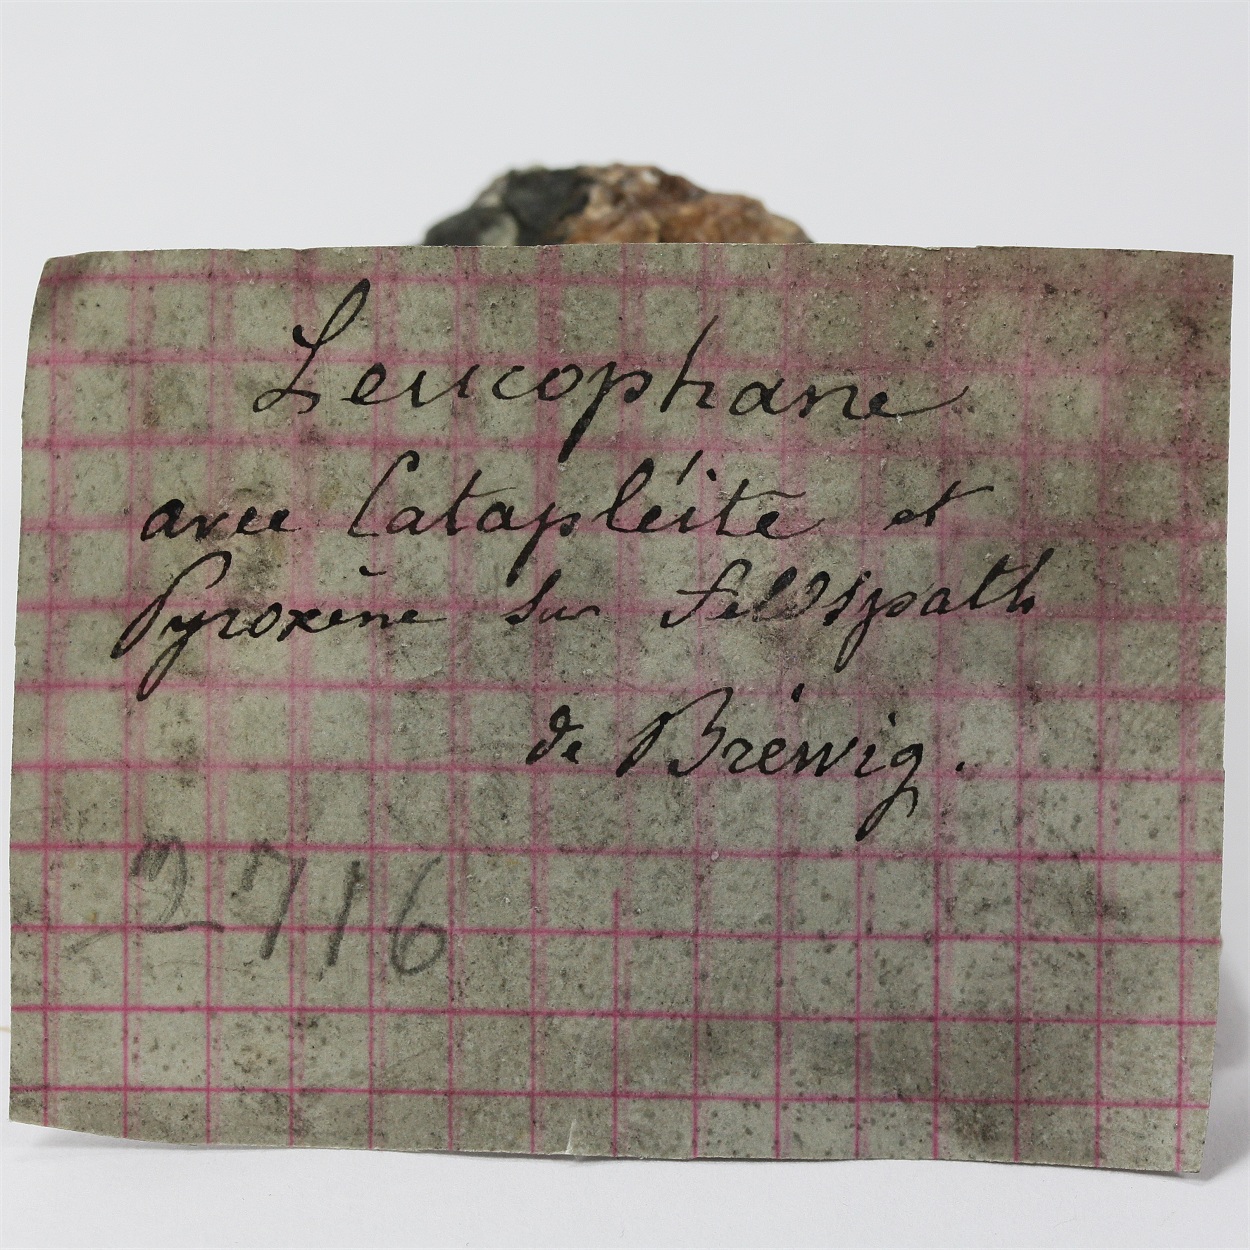 Leucophane
avec Catapléite et
Pyroxène sur feldspath
de Bréwig.
2716